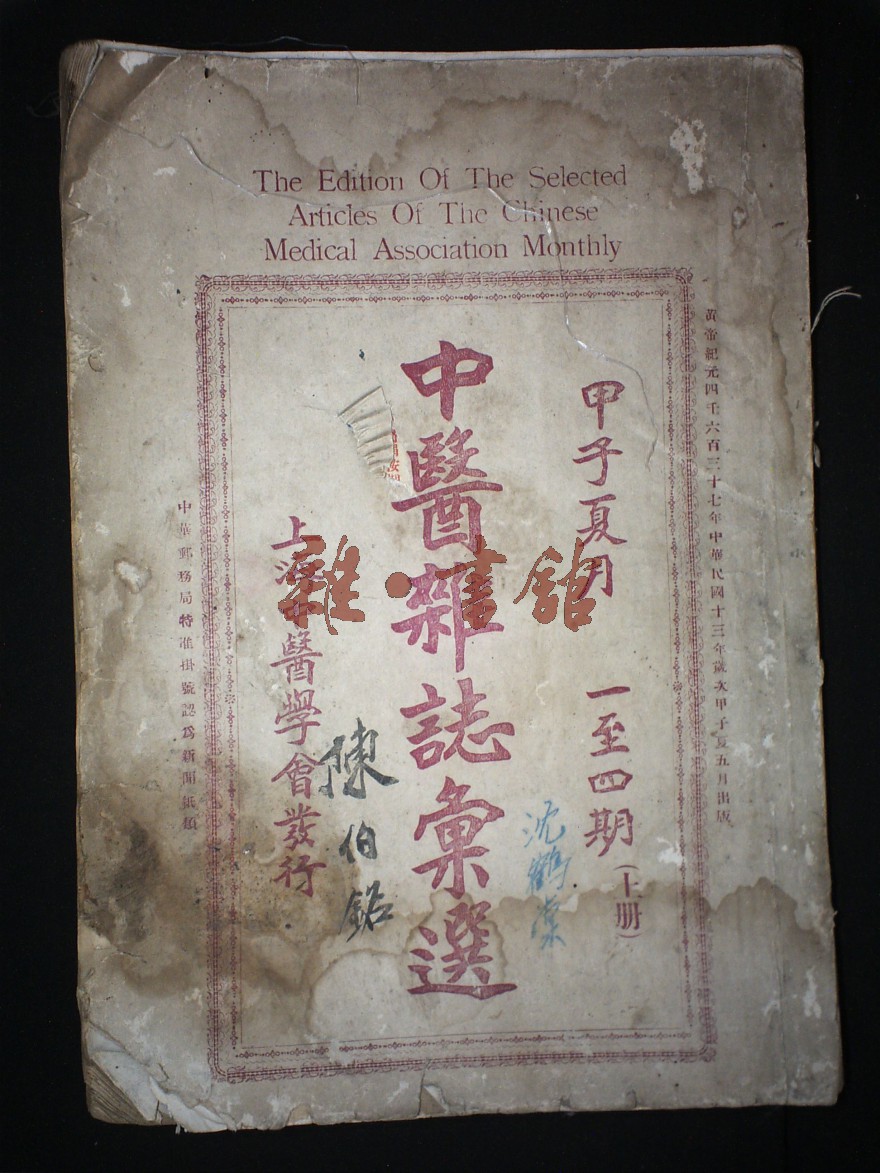 The Edition Of The Selected
Articles Of The Chinese
Medical Association Monthly
黃帝紀元四千六百三十七年中華民國十三年歲次甲子夏五月出版
甲子夏月 一至四期(上册)
沈鶴
中醫雜誌彙選
陳伯銘
上海中醫學會發行
中華郵務局特准掛號認爲新聞紙類
雜·書舘